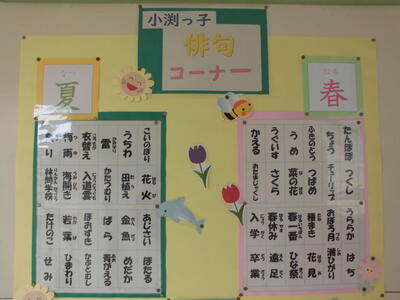 小渕っ子
俳句
コーナー
はる
春
たんぽぽ つくし うららか はち
ちょう チューリップ おぼろ月 潮ひがり
ふきのとう つばめ 種まき 花見
うめ 菜の花 春一番 ひな祭
うぐいす さくら 春休み 遠足
かえる おたまじゃくし 入学 卒業
なつ
夏
こいのぼり 花火 あじさい ほたる
うちわ 田植え 金魚 めだか
雷 かたつむり ばら 青がえる
衣替え 入道雲 ほおずき かぶとむし
梅雨 海開き 若葉 ひまわり
り 林間学校 たけのこ せみ